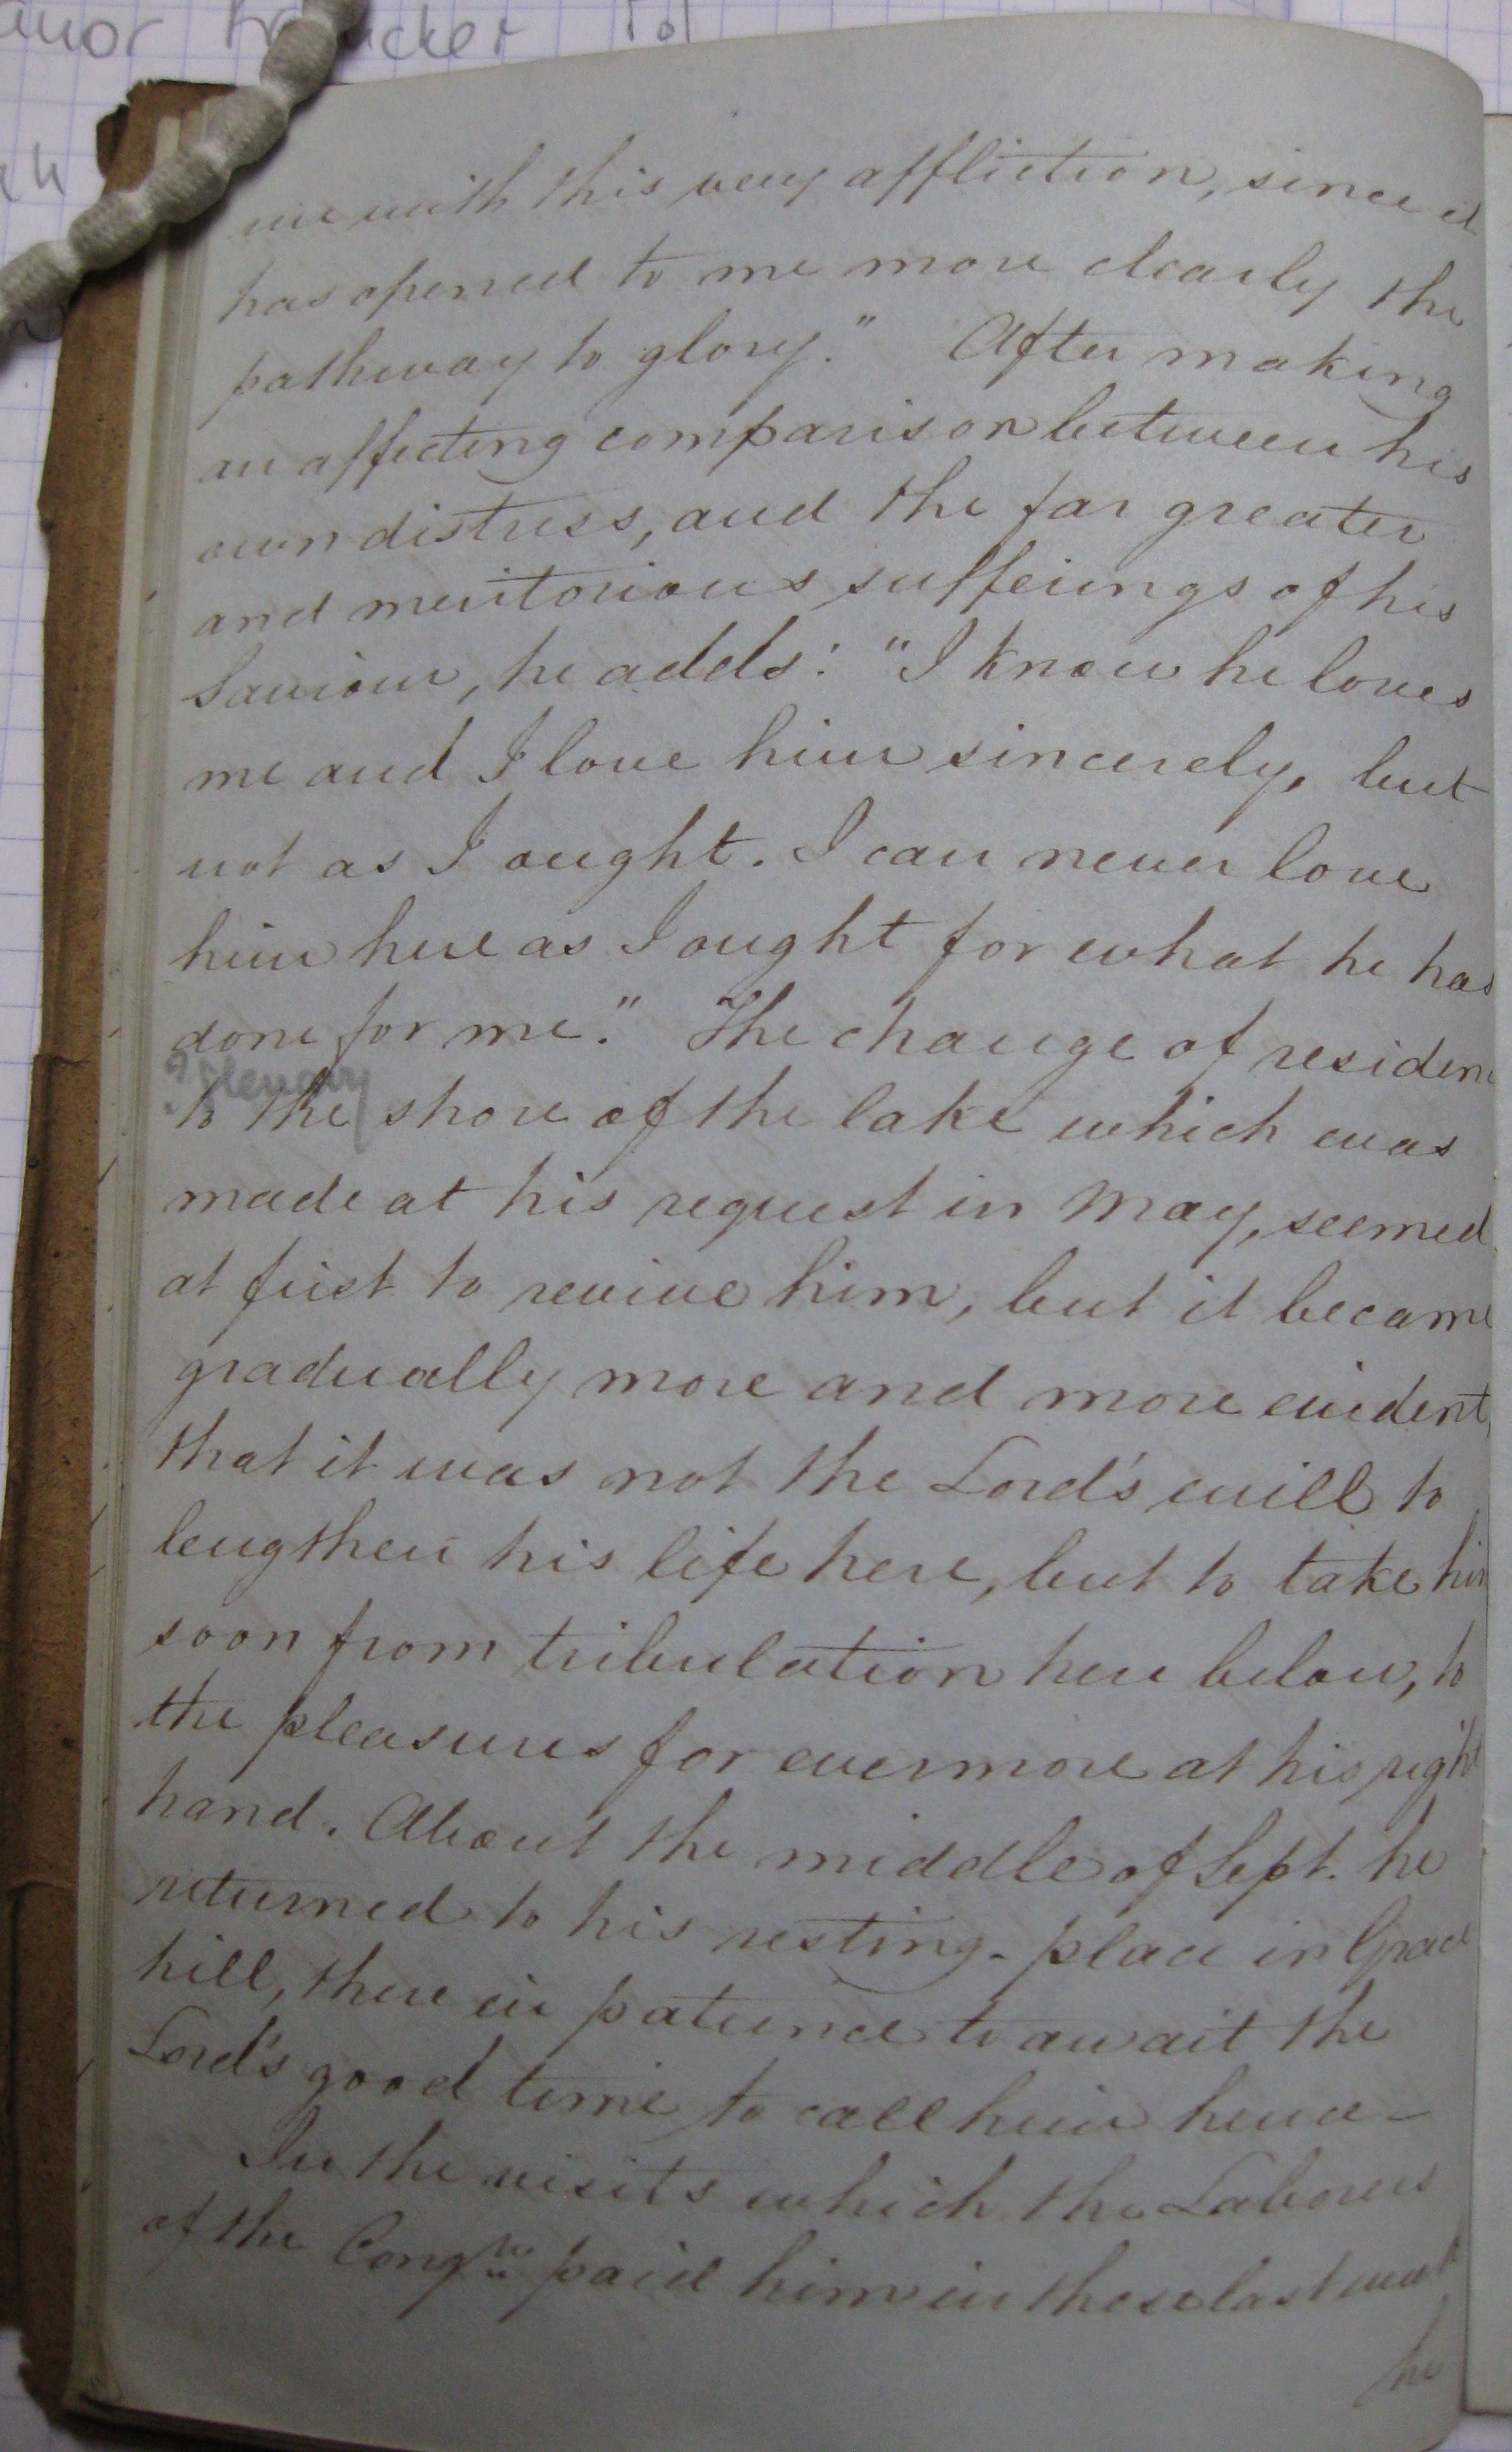 anor Tucker
me with this very affliction, since it
has opened to me more clearly the
pathway to glory." After making
an affecting comparison between his
own distress, and the far greater
and meritorious sufferings of his
Saviour, he adds: "I know he loves
me and I love him sincerely, but
not as I ought. I can never love
him here as I ought for what he has
done for me." The change of residenc
? Glenavy
to the shore of the lake which was
made at his request in May, seemed
at first to revive him, but it became
gradually more and more evident,
that it was not the Lord's will to
lengthen his life here, but to take him
soon from tribulation here below, to
the pleasures for evermore at his right
hand. About the middle of Sept. he
returned to his resting-place in Grace
hill, there in patience to await the
Lord's good time to call him hence-
In the visits which the Laborers
of the Congn. paid him in these last weeks
he